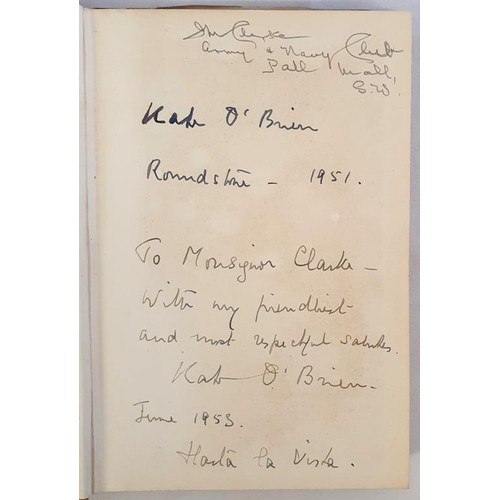 Clarke
Army & Navy Club
Pall Mall,
S.W.
Kate O'Brien
Roundstone — 1951.
To Monsignor Clarke —
With my friendliest
and most respectful salutes.
Kate O'Brien —
June 1953.
Hasta la Vista.